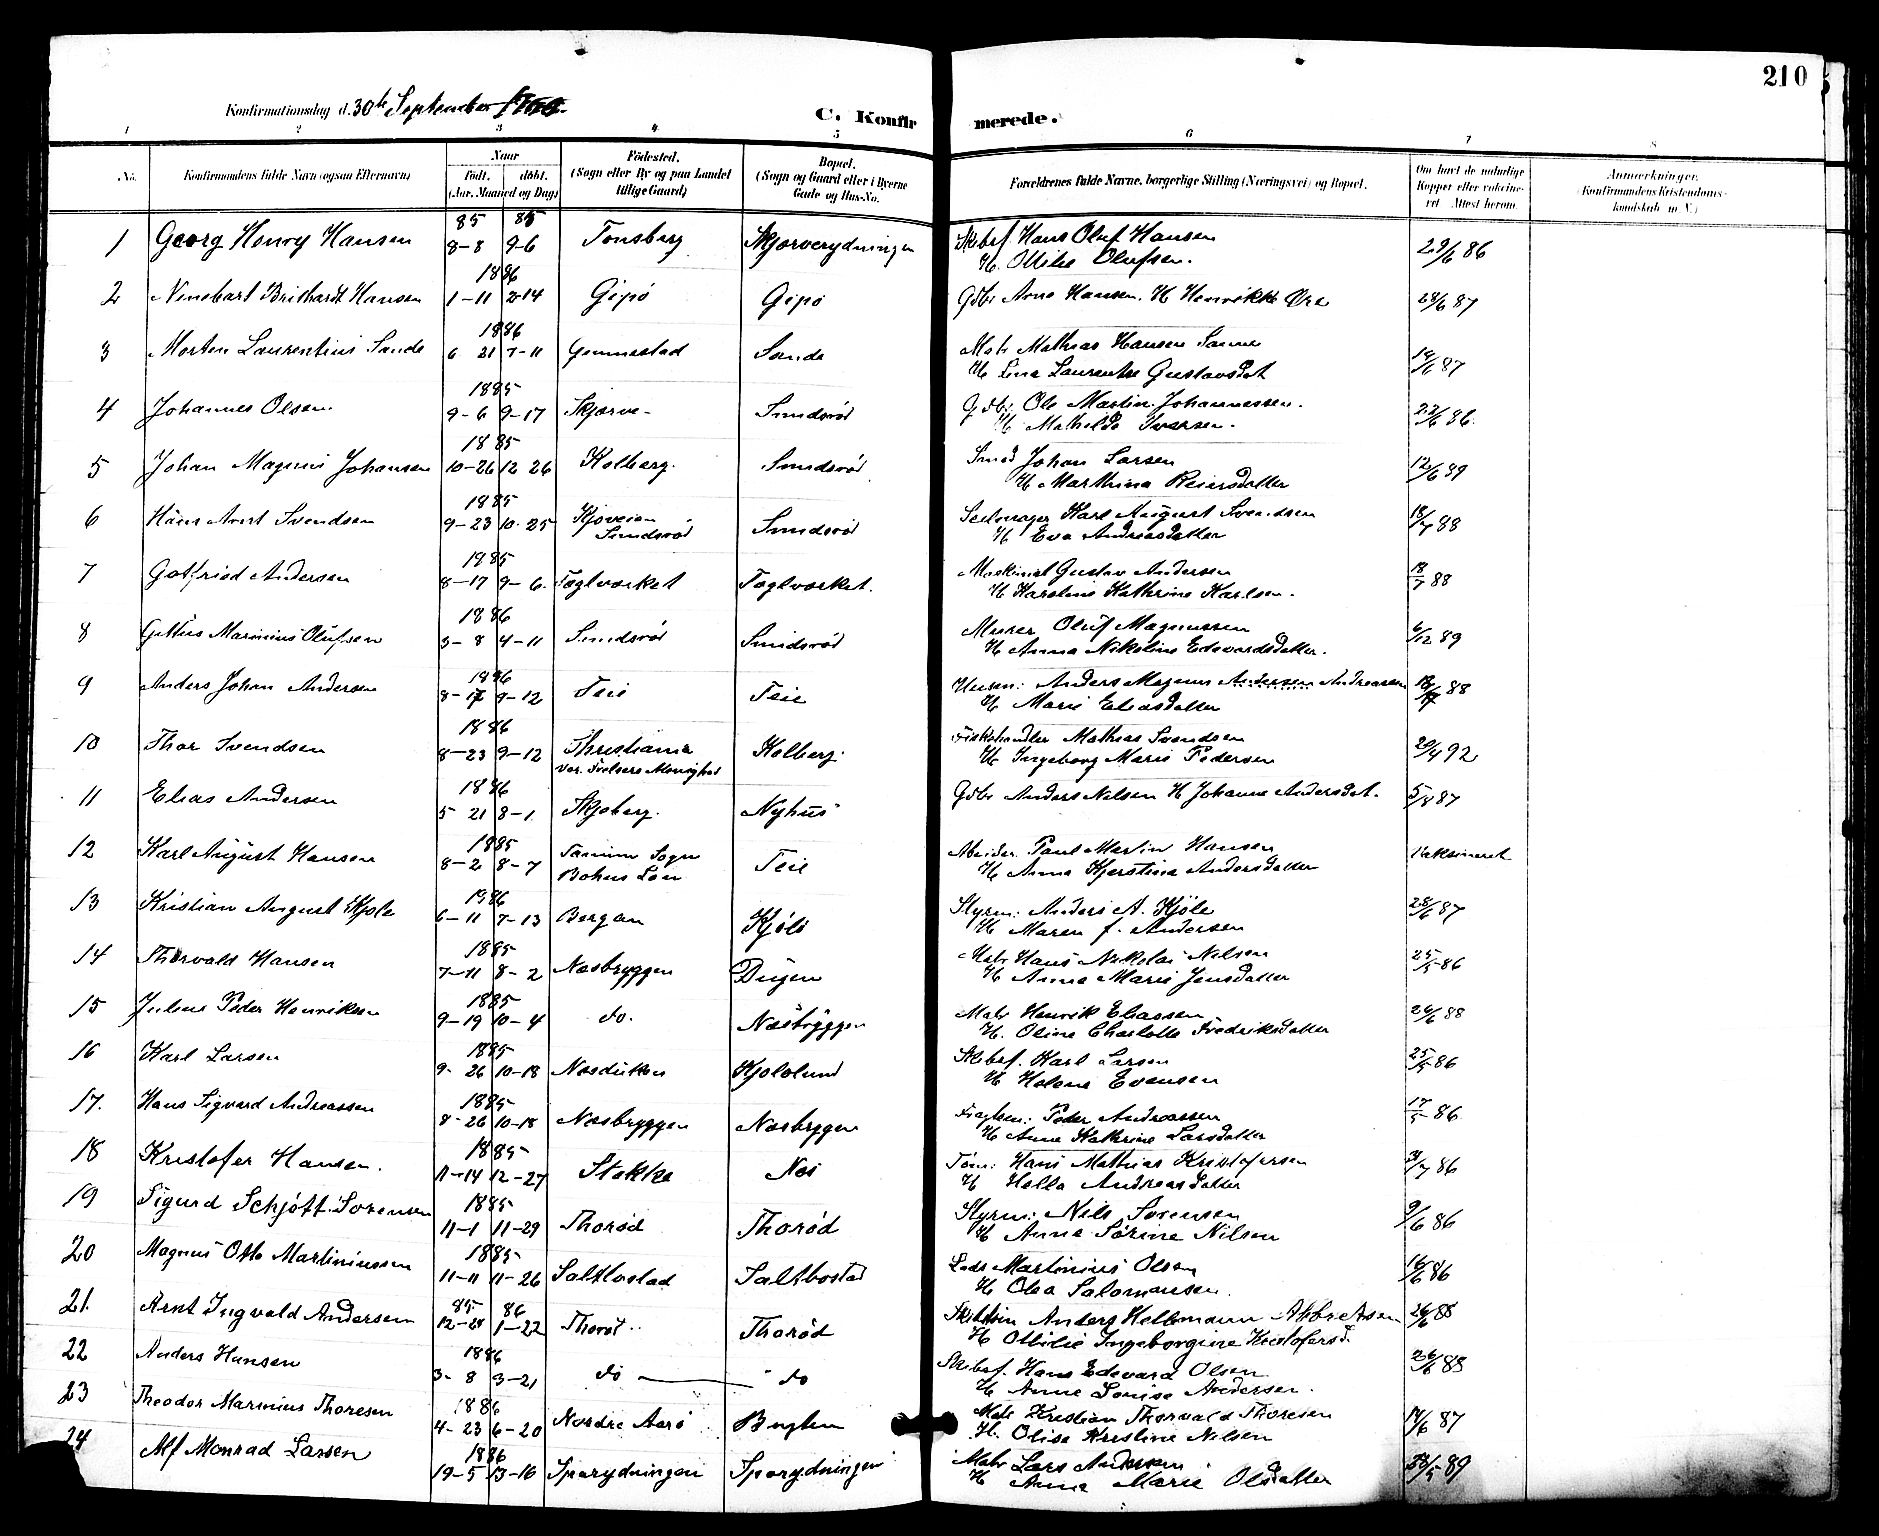 210
Konfirmationsdag d. 30te September
C. Konfirmerede.
1 2 3 4 5 6 7 8
No. Konfirmandens fulde Navn (ogsaa Efternavn) Naar Födt. döbt. (Aar. Maaned og Dag) Födested. (Sogn eller By og paa Landet tillige Gaard) Bopæl. (Sogn og Gaard eller i Byerne Gade og Hus-No. Forældrenes fulde Navne, borgerlige Stilling (Næringsvei) og Bopæl. Om havt de naturlige Kopper eller vaccineret. Attest herom. Anmerkninger. (Konfirmandens Kristendomskundskab m. V.)
85 85
1 Georg Henry Hansen 8-8 9-6 Tonsberg Skjærverydningen Skibsf. Hans Oluf Hansen 29/6 86
H. Olufsen.
1886
2 Hansen 1-11 2-14 Gipö Gipö Gdbr Hansen. H 24/6 87
1886
3 Morten Laurentius Sande 6 21 7-11 Gennestad Sande Matr Mathias Hansen Sanne 87
H Lina Laurentze Gustavsdat
1885
4 Johannes Olsen. 9-6 9-17 Skjærve- Smidsröd Gdbr. Ole Martin Johannessen. 22/6 86.
H Mathilde Iversen.
1885
5 Johan Magnus Johansen 10-26 12 26 Kolberg. Smidsröd Smed Johan Larsen 12/6 89
H Marthina Reiersdatter
1885
6 Hans Arnt Svendsen 9-23 10-25 Smidsröd Smidsröd Karl August Svendsen 88
H Eva Andreasdatter
1985
7 Gotfried Andersen 8-17 9-6. Teglværket Teglværket. Maskinist Gustav Andersen 18/7 88
H Karoline Kathrine Karlsen.
1886
8 Marinius Olufsen 3-8 4-11 Smidsröd Smidsröd Murer Oluf Magnussen 6/12 89
H Anna Nikoline Edevardsdatter.
1886
9 Anders Johan Andersen 8-17 9-12 Teie Teie Husm: Anders Magnus Andersen Andreasen 88
H Marie Eliasdatter
1886
10 Thor Svendsen 8-23 9-12 Christiania Kolberg. Fiskehandler Mathias Svendsen 29/4 92
Vor Frelsers Menighed H Ingeborg Marie Pedersen
1886
11 Elias Andersen 5 21 8-1. Skjeberg. Nyhus Gdbr Anders Nilsen H Johanne Andersdat. 87
1885
12 Karl August Hansen 8-2 8-7 Tanum Sogn Teie Arbeider. Paul Martin Hansen Vaksineret
Bohus Len H Anna Kjerstina Andersdatter
1986
13 Kristian August Kjöle 6-11 7-13 Bergan Kjöle Styrm: Anders A. Kjöle 28/6 87
H Maren f. Andersen
1885
14 Thorvald Hansen 7-11 8-2 Næsbryggen Dugen Matr Hans Nikolai Nilsen 25/5 86
H Anne Marie Jensdatter
1885
15 Julius Peder Henriksen 9-19 10-4 do. Næsbryggen Matr Henrik Eliassen 26/6 88
H. Oline Charlotte Fredriksdatter
1885
16 Karl Larsen 9-26 10-18 Kjölelund Skibsf. Karl Larsen 25/5 86
H Helene Evensen
1885
17. Hans Sigvard Andreassen 8-26 10-18 Næsbryggen Næsbrygen Peder Andreassen 17/5 86.
H Anne Kathrine Larsdatter
1885
18 Kristofer Hansen. 11-14 12-27 Stokke Nes Töm: Hans Mathias Kristofersen 86
H Helle Andreasdatter
1885
19 Sigurd Schjött Sörensen 11-1 11-29 Thoröd Thoröd Styrm: Nils Sörensen 9/6 86
H Anne Sörine Nilsen
1885
20 Magnus Otto Martiniussen 11-11 11-26 Saltbostad Saltbostad Lods Martinius Olsen 16/6 86
H Olea Salomonsen.
85 86
21. Arnt Ingvald Andersen 12-24 1-22 Thoröd Thoröd Anders 26/6 88
H Ottilie Ingeborgine Kristofersd.
1886
22 Anders Hansen 3-8 3-21 do do Skibsf. Hans Edevard Olsen 26/6 88
H Anne Louise Andersen.
1886
23 Theodor Marinius Thoresen 4-23 6-20 Nordre Aarö Bugten Matr Kristian Thorvald Thoresen 14/6 87
H. Olise Kristine Nilsen
1886
24 Alf Monrad Larsen 19-5 13-16 Sparydningen Sparydningen Matr Lars Andersen 89
H Anna Marie Olsdatter